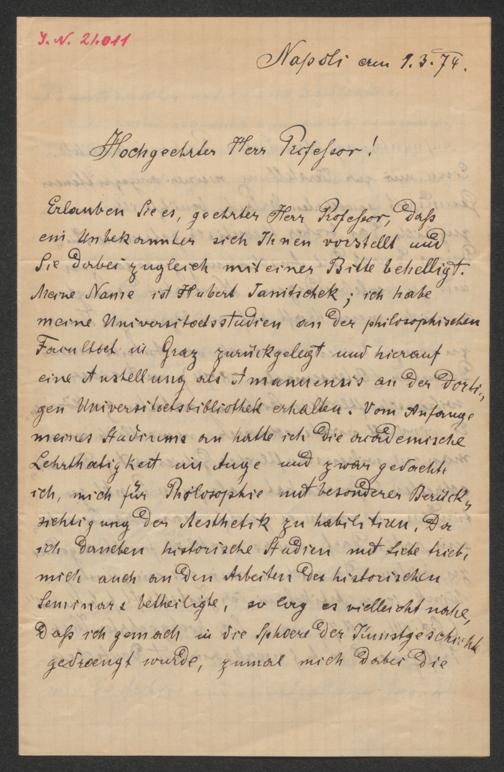 J. N. 21.011
Napoli am 9.3.74.
Hochgeehrter Herr Professor!
Erlauben Sie es, geehrter Herr Professor, daß
ein Unbekannter sich Ihnen vorstellt und
Sie dabei zugleich mit einer Bitte behelligt.
Meine Name ist Hubert Janitschek; ich habe
meine Universitaetsstudien an der philosophischen
Facultaet in Graz zurückgelegt und hierauf
eine Anstellung als Amanuensis an der dorti-
gen Universitaetsbibliothek erhalten. Vom Anfange
meines Studiums an hatte ich die academische
Lehrthätigkeit im Auge und zwar gedachte
ich, mich für Philosophie mit besonderer Berück-
sichtigung der Aesthetik zu habilitiren. Da
ich daneben historische Studien mit Liebe trieb,
mich auch an den Arbeiten des historischen
Seminars betheiligte, so lag es vielleicht nahe,
daß ich gemach in die Sphaere der Kunstgeschichte
gedraengt wurde, zumal mich dabei die